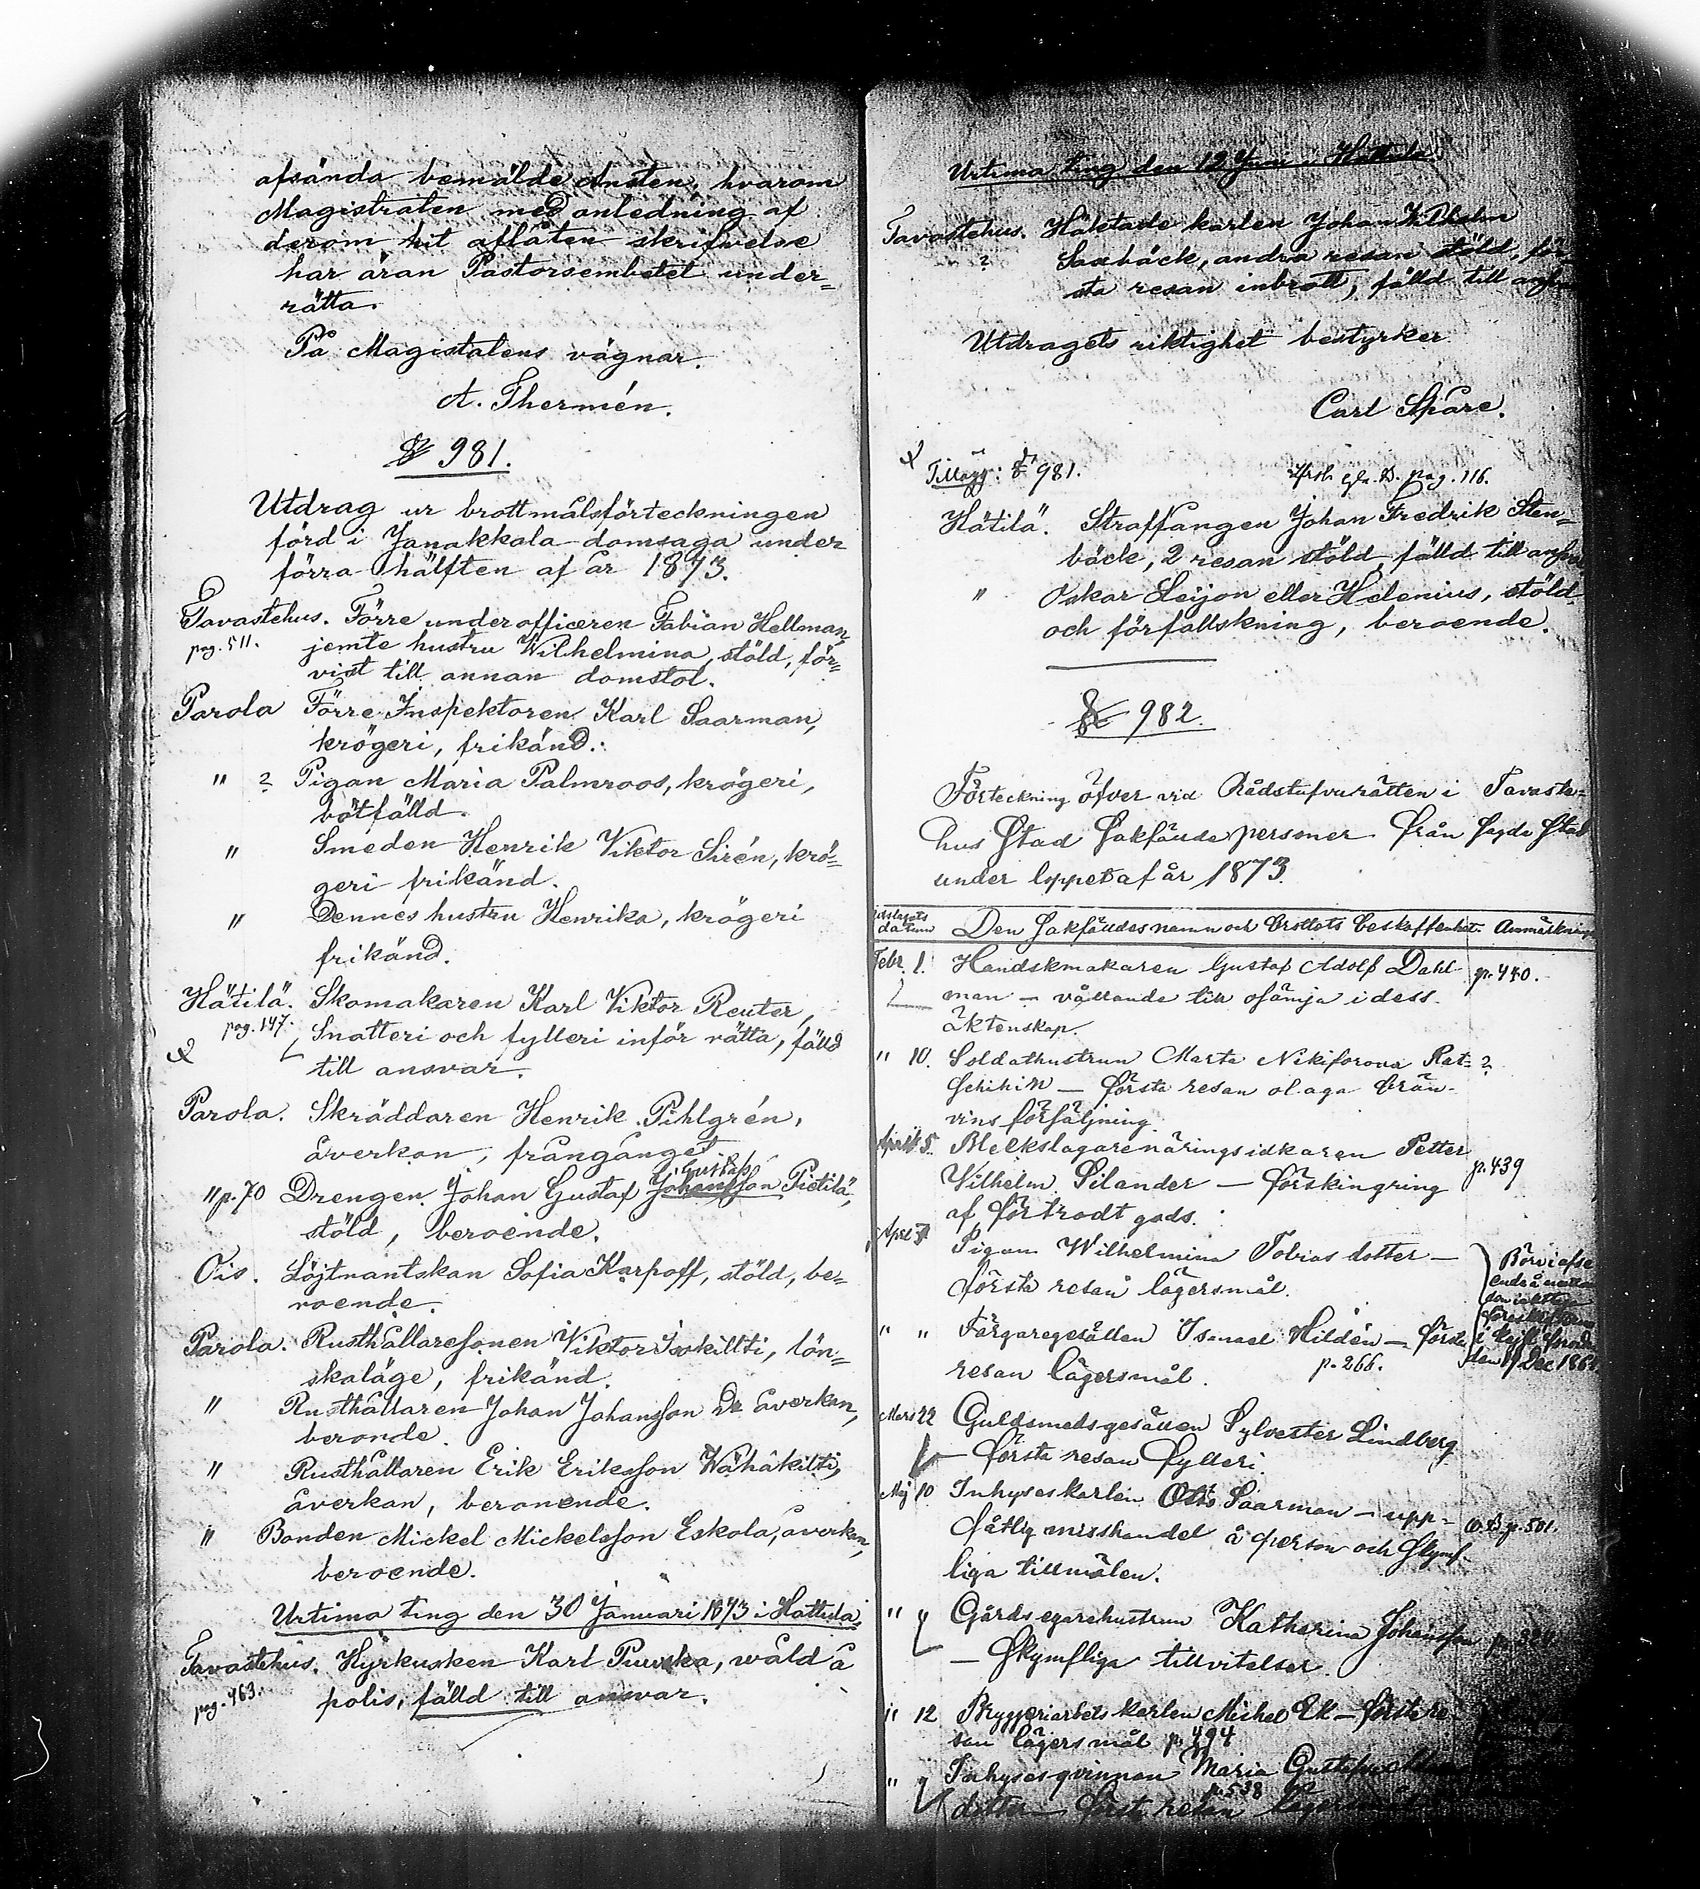 afsända bemälde Ansten, hvarom
Magistraten med anledning af
derom hit aflåten skrifvelse
har äran Pastorsembetet under=
rätta.
På Magistatens vägnar.
A. Thermén.
§ 981.
Utdrag ur brottmålsförteckningen
förd i Janakkala domsaga under
förra hälften af år 1873.
Tavastehus. Förre underofficeren Fabian Hellman,
pag. 511. jemte hustru Wilhelmina, stöld, för=
vist till annan domstol.
Parola Förre Inspektoren Karl Saarman,
krögeri, frikänd.
" ? Pigan Maria Palmroos, krögeri,
bötfälld.
" Smeden Henrik Viktor Sirén, krö=
geri frikänd.
" Dennes hustru Henrika, krögeri
frikänd.
Hätilä. Skomakaren Karl Viktor Reuter,
pag. 147. Snatteri och fylleri inför rätta, fälld
till ansvar.
Parola. Skräddaren Henrik Pihlgrén,
åverkan, frångånget
Gustafs
" p. 70 Drengen Johan Gustaf Johansson Pietilä,
stöld, beroende.
Ois. Löjtnantskan Sofia Karpoff, stöld, be=
roende.
Parola. Rusthållaresonen Viktor Isokillti, lön=
skaläge, frikänd.
" Rusthållaren Johan Johansson åverkan,
beronde.
" Rusthållaren Erik Eriksson Wähäkilti,
åverkan, beronende.
" Bonden Mickel Mickelsson Eskola, åverkan,
beroende.
Urtima ting den 30 Januari 1873 i Hattula.
Tavastehus. Hyrkusken Karl Puuska, wåld å
pag. 463. polis, fälld till ansvar.
Urtima ting den 12 Juni i Hattula
Tavastehus. Häktade karlen Johan Wilhelm
? Saxbäck, andra resan stöld, för
sta resan inbrott, fälld till
Utdragets riktighet bestyrker
Carl Spåre.
Tillägg: § 981. pag. 116.
Hätilä. Straffången Johan Fredrik Sten=
bäck, 2 resan stöld, fälld till
" Oskar Leijon eller Helenius, stöld
och förfallskning, beroende.
§ 982.
Förteckning öfver vid Rådstufvurätten i Tavaste=
hus Stad Sakfäude personer från Sagde Stad
under loppet af år 1873.
datum Den Sakfäudes namn och brottets beskaffenhet Anmärkning
Febr. 1. Handskmakaren Gustaf Adolf Dahl- p. 440.
man – vållande till osämja i dess
äktenskap.
" 10. Soldathustrun Marta Nikiforova Rat- ?
schikin – första resan olaga brän-
vins försäljning
April 5. Bleckslagarenäringsidkaren Petter
Vilhelm Silander – förskingring p. 439
af förtrodt gods.
April 7 Pigan Wilhelmina Tobiasdotter –
första resan lägersmål.
" " Färgaregesällen Isanael Hildén – första
resan lägersmål. p. 266.
den Dec 186
Mars 22 Guldsmedsgesällen Sylvester Lindberg
– första resan fylleri
Maj 10 Inhyseskarlen Otto Saarman – upp-
såtlig misshandel å person och Skymf- p. 501.
liga tillmälen.
" " Gårdsegarehustrun Katharina Johansson
– Skymfliga tillvitelser
" 12 Bryggeriarbetskarlen Michel Ek – första re
san lägersmål p. 494
" " Inhysesqvinnan Maria
p. 538
dotter – första resan